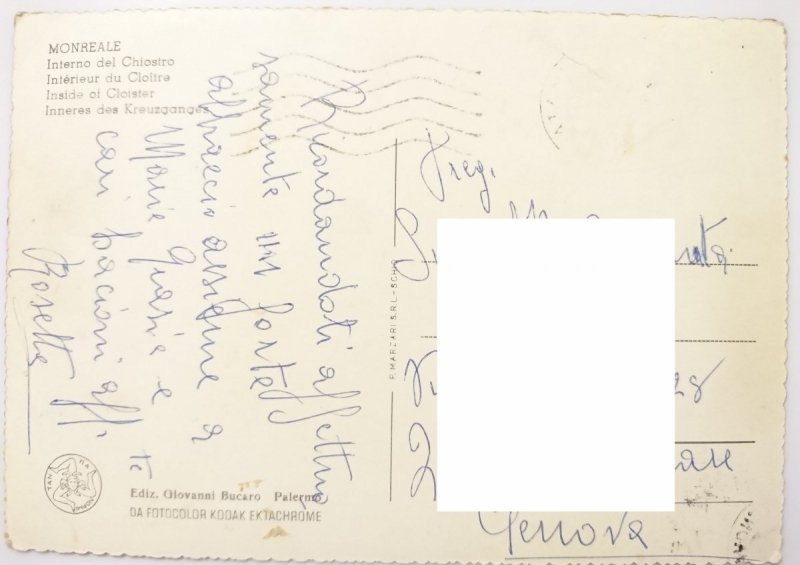 MONREALE
Interno del Chiostro
Intérieur du Cloître
Inside of Cloister
Inneres des Kreuzganges
Ricordandoti affettuo
samente un forte
abbraccio assieme a
Maria Grazia e
cari bacioni aff.
te
Rosetta
Ediz. Giovanni Bucaro Palermo
DA FOTOCOLOR KODAK EKTACHROME
P. MARZARI S.R.L. - SCHIO
Preg.
Genova